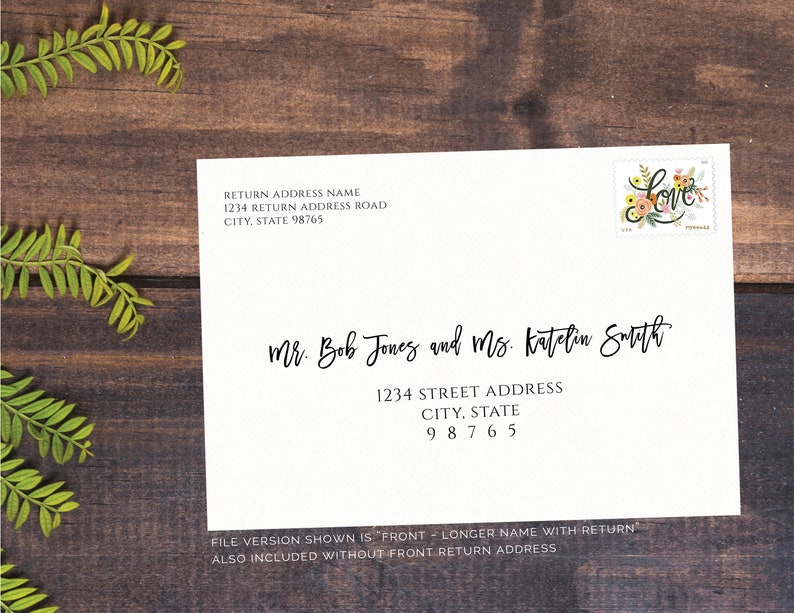 RETURN ADDRESS NAME
1234 RETURN ADDRESS ROAD
CITY, STATE 98765
Love
USA FOREVER
Mr. Bob Jones and Ms. Katelin Smith
1234 STREET ADDRESS
CITY, STATE
9 8 7 6 5
FILE VERSION SHOWN IS "FRONT - LONGER NAME WITH RETURN"
ALSO INCLUDED WITHOUT FRONT RETURN ADDRESS